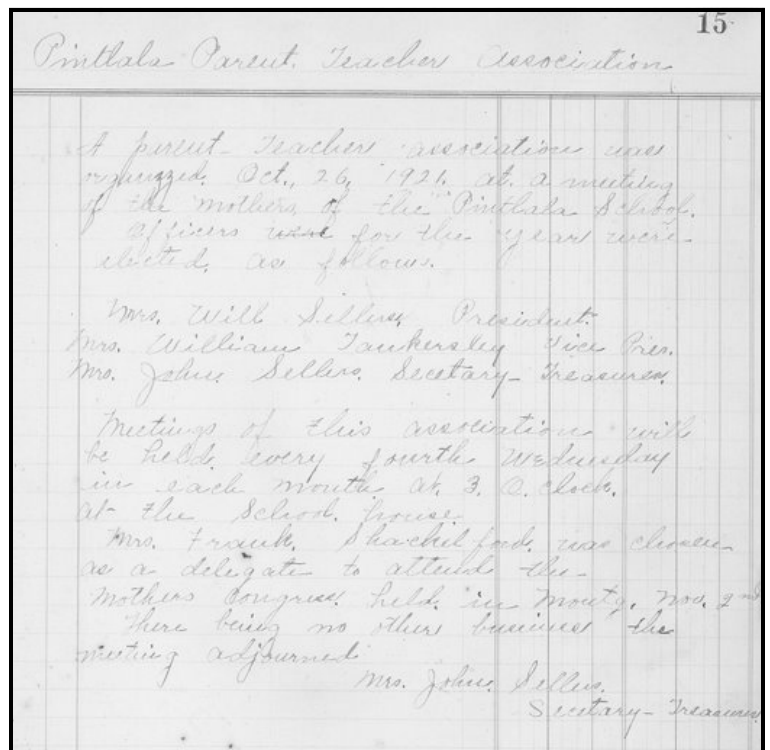 15
Pintlala Parent. Teacher Association
A parent-Teachers association was
organized. Oct., 26, 1921. at. a meeting
of the mothers. of the Pintlala School.
Officers were for the year were
elected. as follows.
Mrs. Will Sellers, President.
Mrs. William Tankersley Vice Pres.
Mrs. John. Sellers. Secetary-Treasurer.
Meetings of this association will
be held. every fourth Wednesday
in each month at. 3. O.clock.
at the School. house.
Mrs. Frank. Shackelford. was chosen
as a delegate to attend the
Mothers Congress. held. in Montg. Nov. 2nd
There being no other business the
meeting adjourned
Mrs. John. Sellers.
Secetary-Treasurer